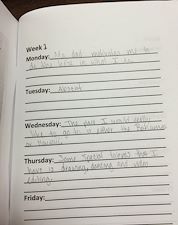 Week 1
Monday: My dad motivates me to
do the best in what I do.
Tuesday: Absent
Wednesday: The place I would really
like to go to is either the Bahamas
or Hawaii.
Thursday: Some special talents that I
have is drawing, dancing and video
editing.
Friday: